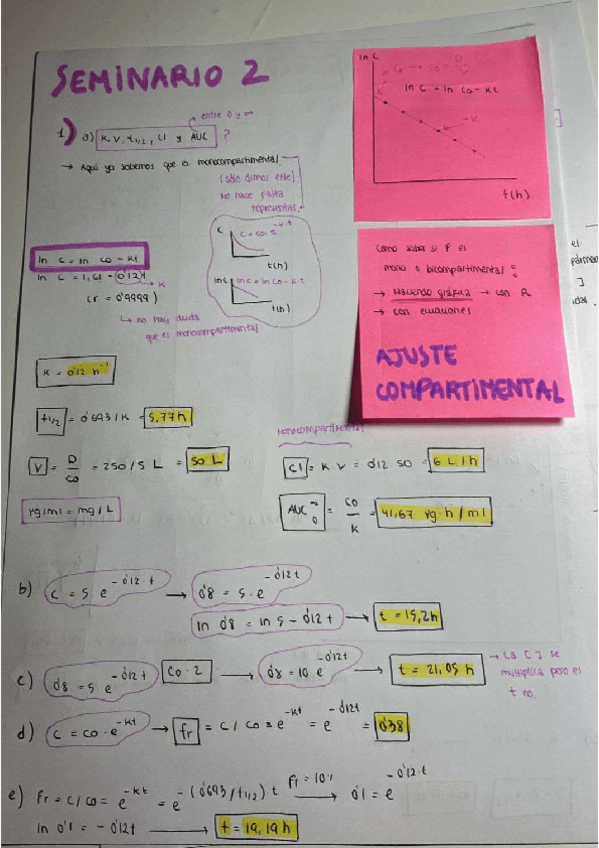 SEMINARIO 2
1) a) K, V, t1/2, Cl y AUC ?
entre 0 y ∞
→ Aquí ya sabemos que es monocompartimental.
(sólo dimos este)
No hace falta
representar.
C
C = C0 · e^-K·t
t(h)
ln C
ln C = ln C0 - K·t
t(h)
ln C = ln C0 - Kt
ln C = 1,61 - 0'12t
K
(r = 0'9999)
↳ no hay duda
que es monocompartimental
K = 0'12 h^-1
t1/2 = 0'693/K = 5,77 h
V = D/C0 = 250/5 L = 50 L
μg/ml = mg/L
Monocompartimental
Cl = K · V = 0'12 · 50 = 6 L/h
AUC 0 ∞ = C0/K = 41,67 μg·h/ml
b) C = 5 · e^-0'12·t → 0'8 = 5 · e^-0'12t
ln 0'8 = ln 5 - 0'12t → t = 15,2h
c) 0'8 = 5 e^-0'12t C0·2 → 0'8 = 10 · e^-0'12t → t = 21,05 h
→ La [ ] se
multiplica pero el
t no.
d) C = C0 · e^-Kt → fr = C/C0 = e^-Kt = e^-0'12t = 0'38
e) Fr = C/C0 = e^-Kt = e^-(0'693/t1/2) t Fr = 10% → 0'1 = e^-0'12·t
ln 0'1 = -0'12t → t = 19,19 h
ln C
ln C0 → C0 = D/V
ln C = ln C0 - Kt
-K
t(h)
Como saber si F es
mono o bicompartimental :
→ Haciendo gráfica → con R
→ con ecuaciones
AJUSTE
COMPARTIMENTAL
el
]